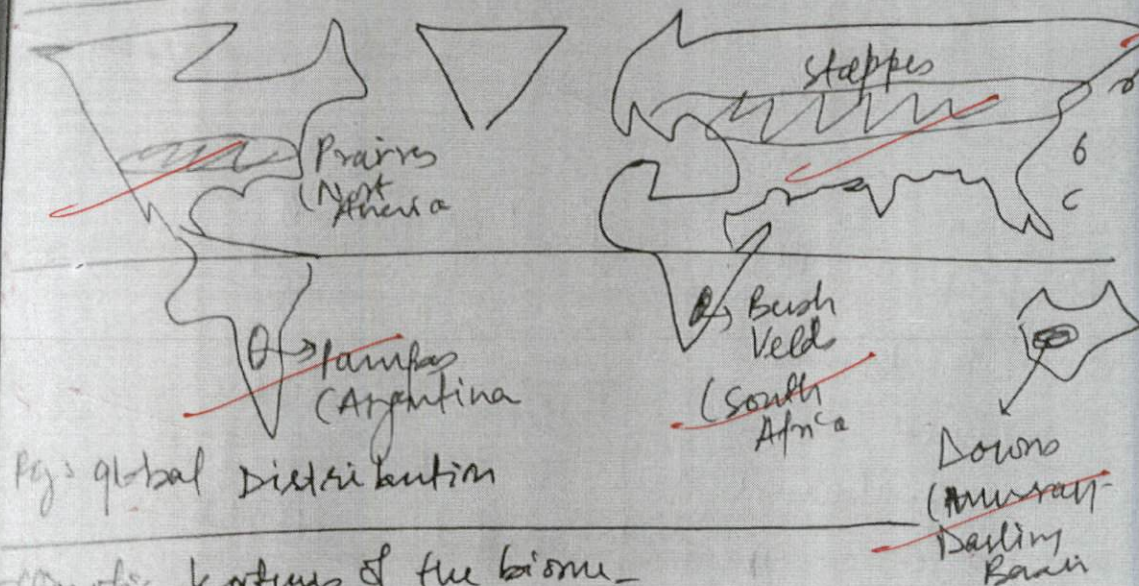 Steppes
Prairres
(Nort
America
6
C
Bush
Velds
(South
Africa
Pampas
(Argentina
Downs
(Murray-
Darling
Basin
Fig: global Distribution
features of the biome_